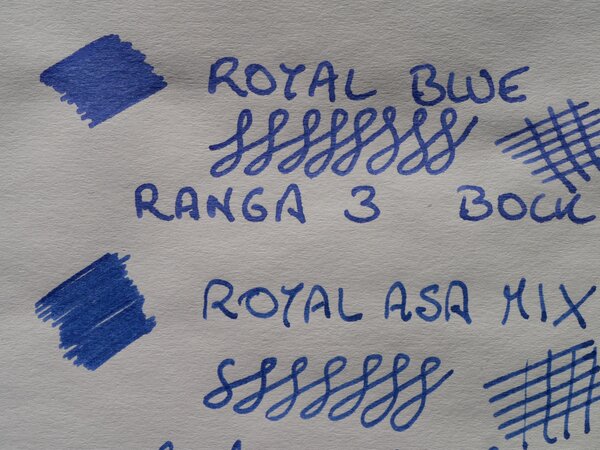 ROYAL BLUE
RANGA 3 BOCK
ROYAL ASA MIX